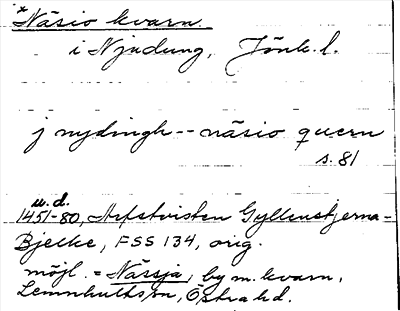 *Näsio kvarn
i Njudung, Jönk. l.
j nydingh -- näsio quern
s. 81
u. d.
1451-80, Arfstvisten Gyllenstjerna-
Bjelke, FSS 134, orig.
möjl. = Nässja, by m. kvarn,
Lemnhults sn, Östra hd.